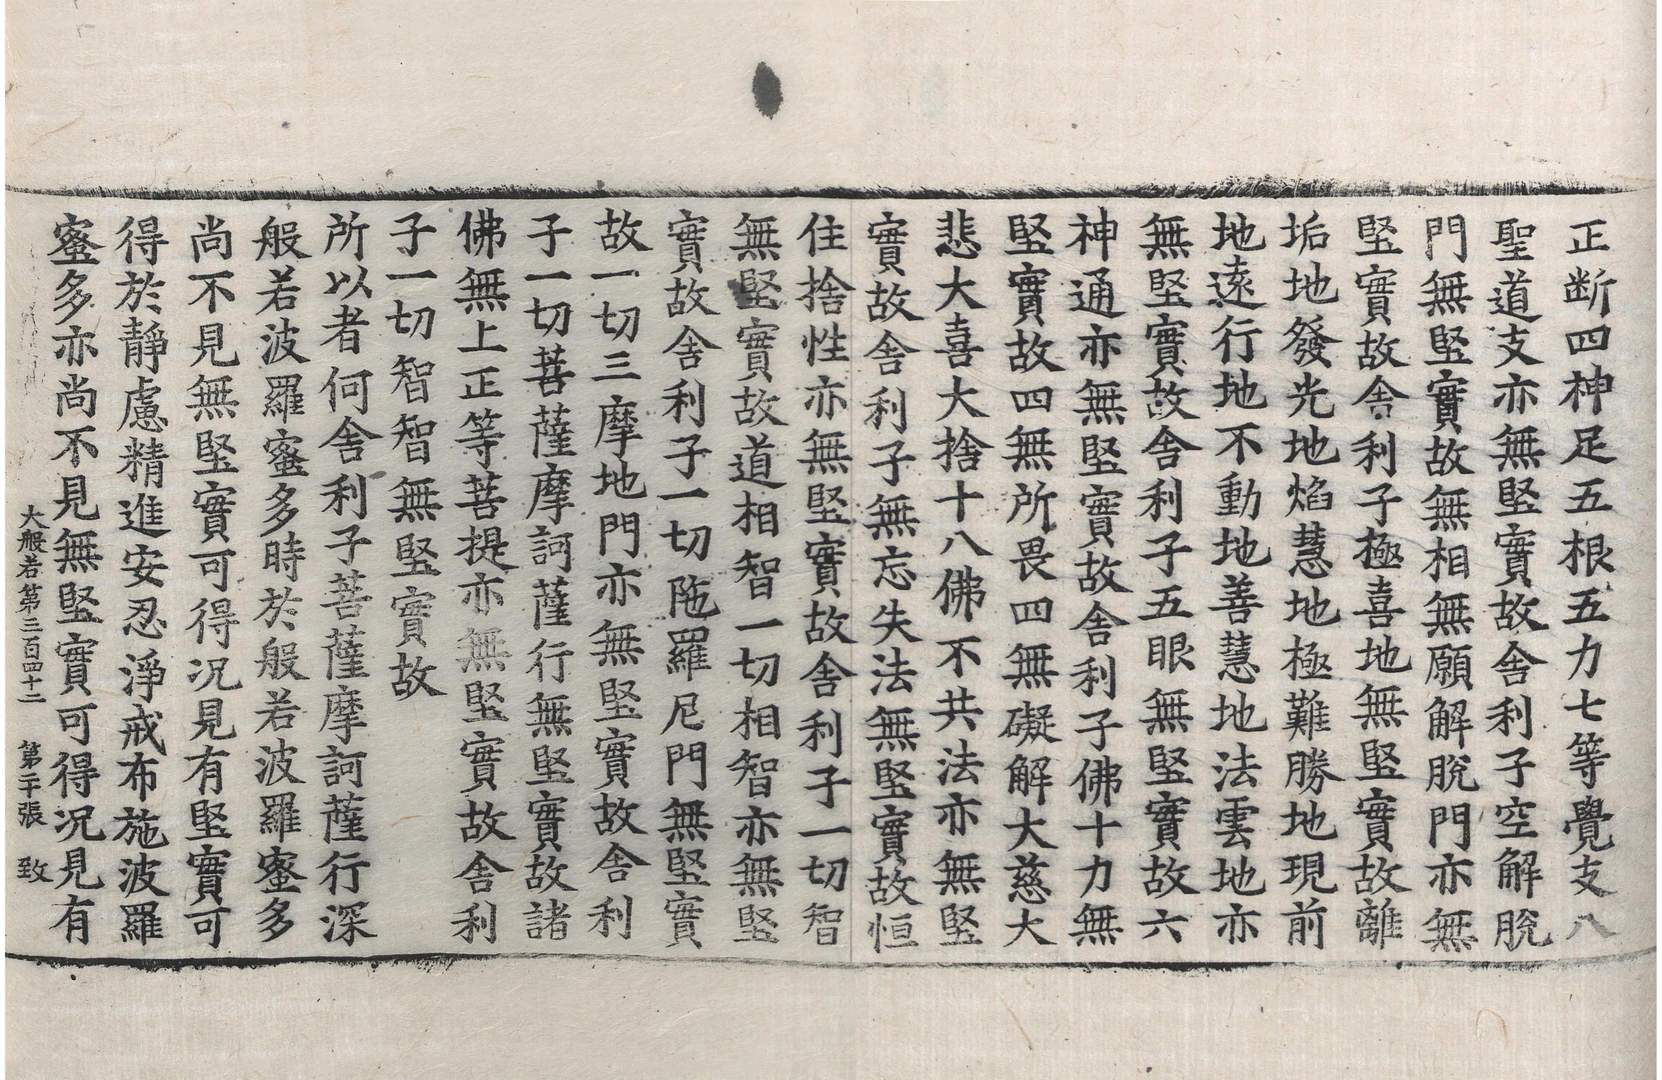 正断四神足五根五力七等覺支八
聖道支亦無堅實故舍利子空解脫
門無堅實故無相無願解脫門亦無
堅實故舍利子極喜地無堅實故離
垢地發光地焰慧地極難勝地現前
地遠行地不動地善慧地法雲地亦
無堅實故舍利子五眼無堅實故六
神通亦無堅實故舍利子佛十力無
堅實故四無所畏四無礙解大慈大
悲大喜大捨十八佛不共法亦無堅
實故舍利子無忘失法無堅實故恒
住捨性亦無堅實故舍利子一切智
無堅實故道相智一切相智亦無堅
實故舍利子一切陁羅尼門無堅實
故一切三摩地門亦無堅實故舍利
子一切菩薩摩訶薩行無堅實故諸
佛無上正等菩提亦無堅實故舍利
子一切智智無堅實故
所以者何舍利子菩薩摩訶薩行深
般若波羅蜜多時於般若波羅蜜多
尚不見無堅實可得况見有堅實可
得於靜慮精進安忍淨戒布施波羅
蜜多亦尚不見無堅實可得况見有
大般若第三百四十二 第二十張 致